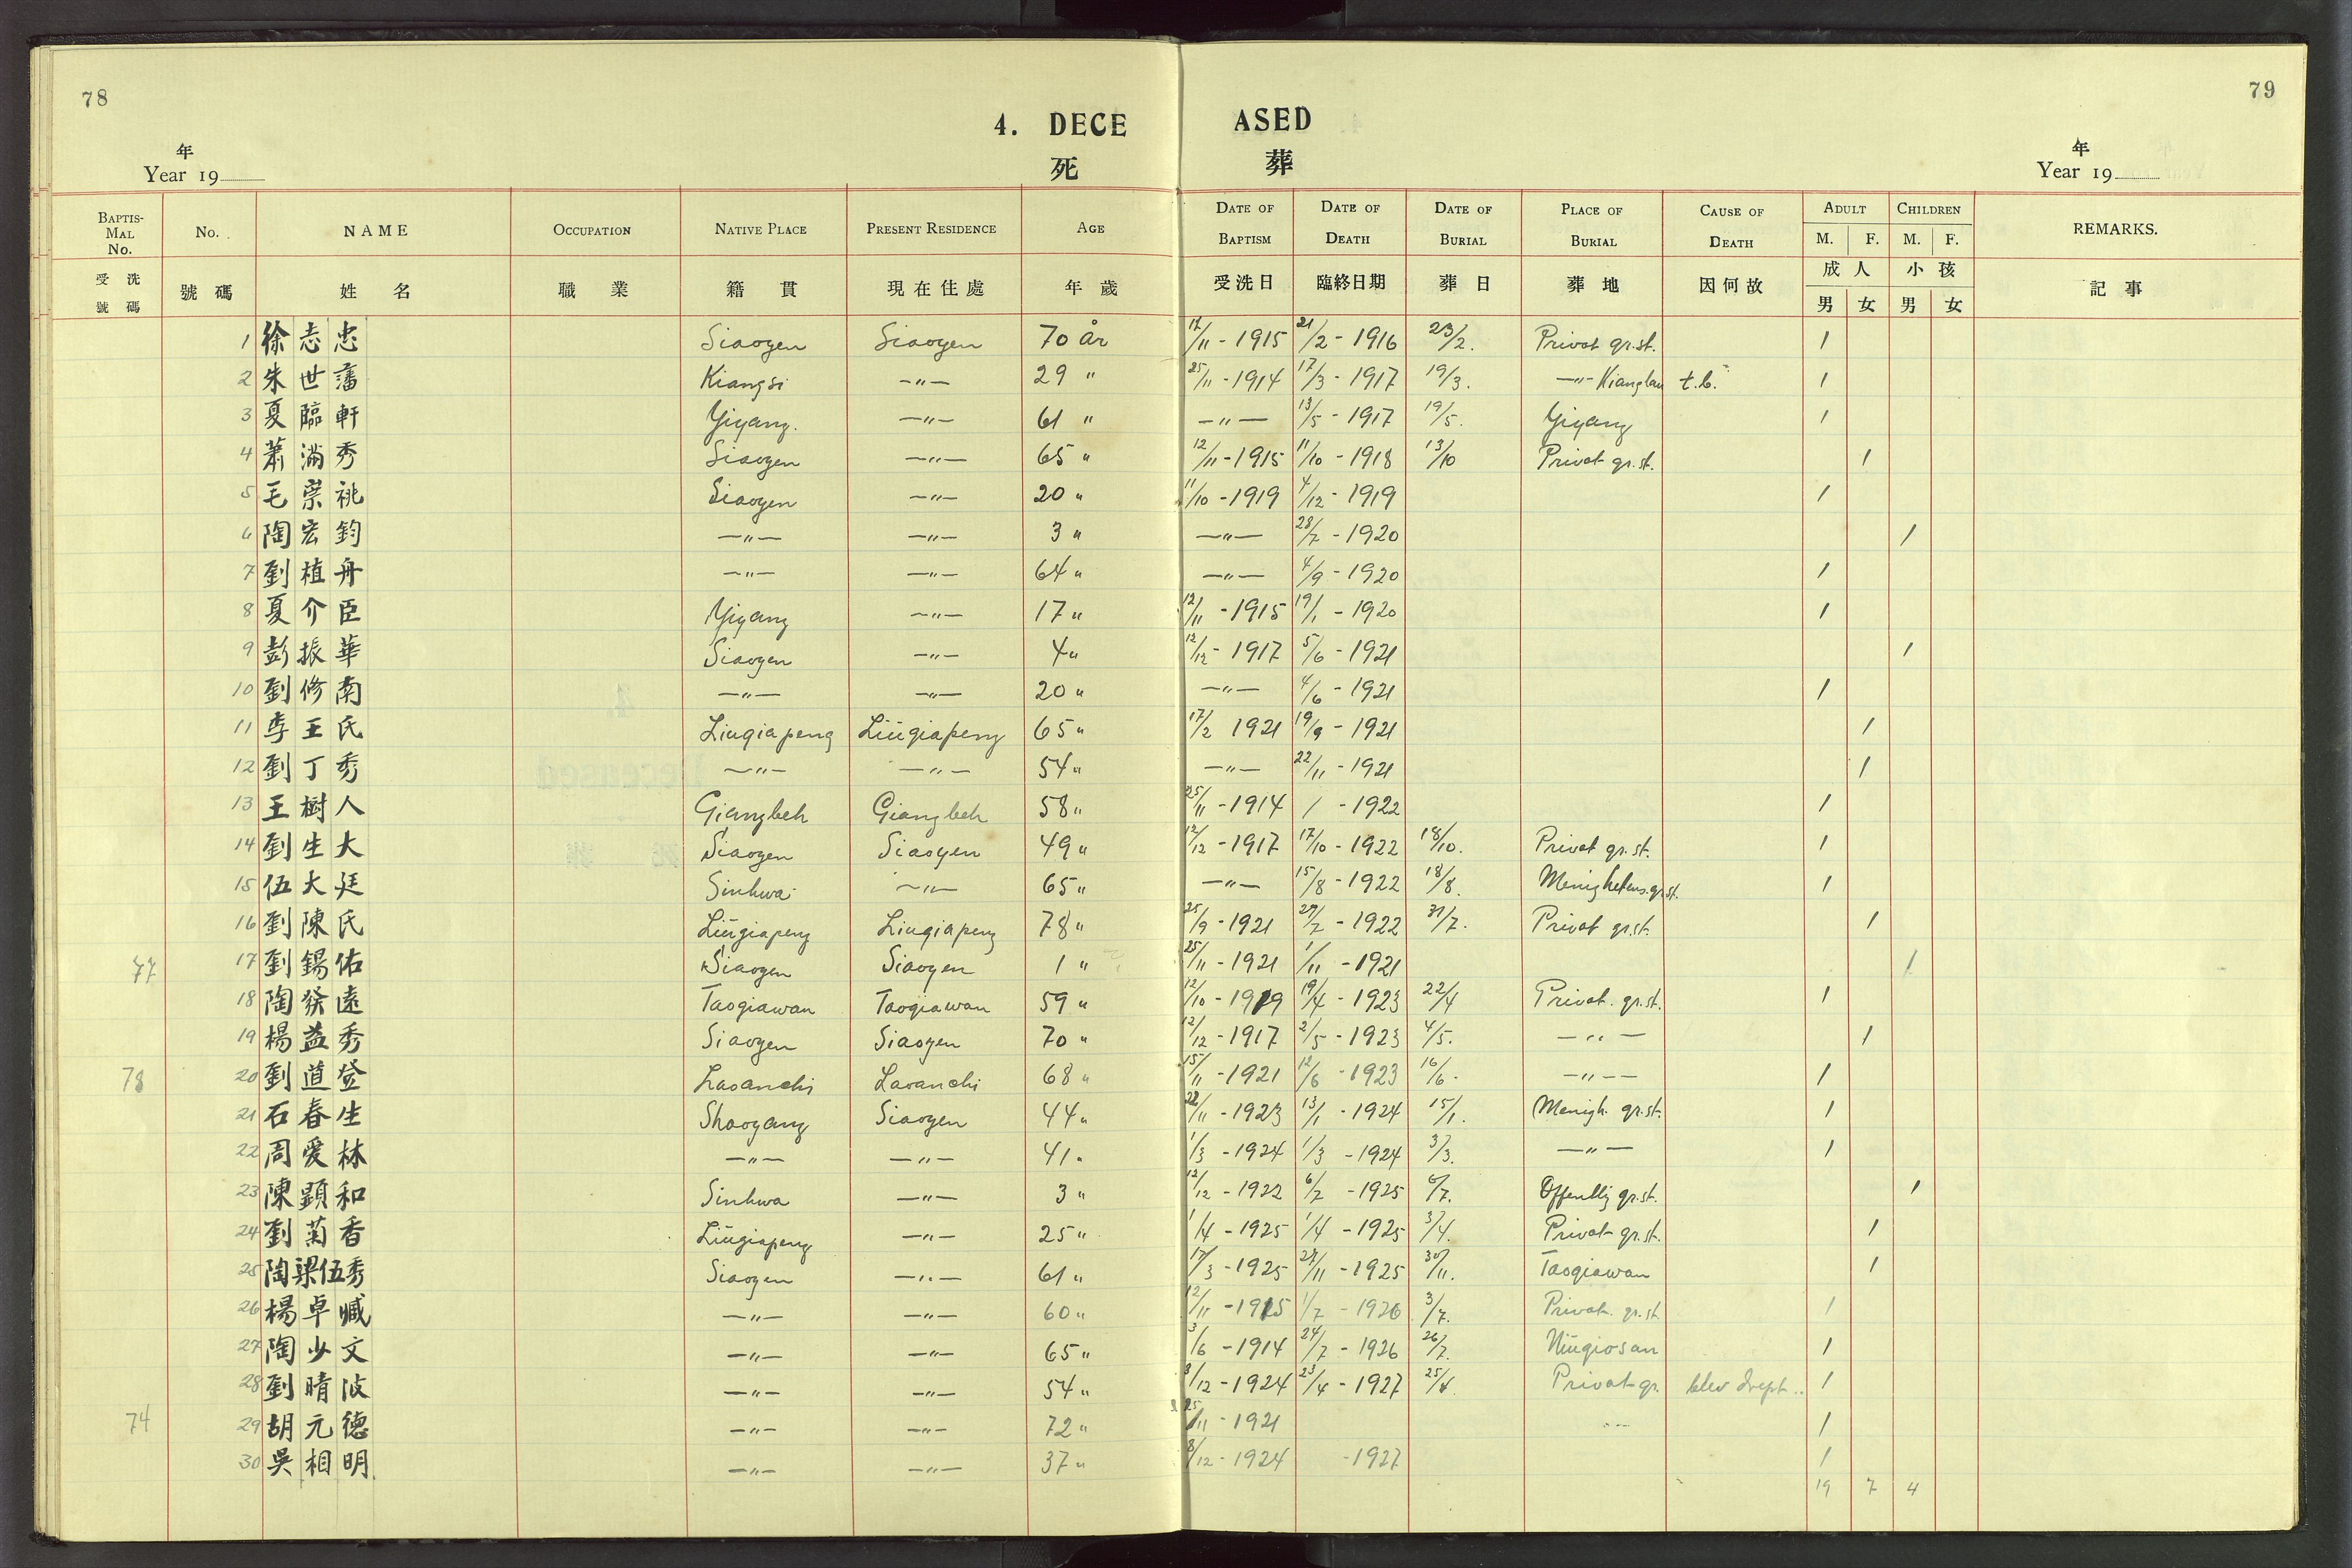 78
79
4. DECE ASED
死 葬
年 年
Year 19 Year 19
BAPTISMAL No. | No. | NAME | OCCUPATION | NATIVE PLACE | PRESENT RESIDENCE | AGE | DATE OF BAPTISM | DATE OF DEATH | DATE OF BURIAL | PLACE OF BURIAL | CAUSE OF DEATH | ADULT M. F. | CHILDREN M. F. | REMARKS.
受洗號碼 | 號碼 | 姓名 | 職業 | 籍貫 | 現在住處 | 年歲 | 受洗日 | 臨終日期 | 葬日 | 葬地 | 因何故 | 成人 男 女 | 小孩 男 女 | 記事
1 徐志忠 Siaoyen Siaoyen 70 år 12/11 - 1915 21/2 - 1916 23/2. Privat gr.st. 1
2 朱世藩 Kiangsi —"— 29 " 25/11 - 1914 17/3 - 1917 19/3. —"— t.b. 1
3 夏臨軒 Yiyang. —"— 61 " —"— 13/5 - 1917 19/5. Yiyang 1
4 蕭滿秀 Siaoyen —"— 65 " 12/11 - 1915 11/10 - 1918 13/10 Privat gr.st. 1
5 毛崇祧 Siaoyen —"— 20 " 11/10 - 1919 4/12 - 1919 1
6 陶宏鈞 —"— —"— 3 " —"— 28/7 - 1920 1
7 劉植舟 —"— —"— 64 " —"— 4/9 - 1920 1
8 夏介臣 Yiyang —"— 17 " 12/11 - 1915 19/1 - 1920 1
9 彭振華 Siaoyen —"— 4 " 12/12 - 1917 5/6 - 1921 1
10 劉修南 —"— —"— 20 " —"— 4/6 - 1921 1
11 李王氏 Liugiapeng Liügiapeng 65 " 17/2 1921 19/9 - 1921 1
12 劉丁秀 —"— —"— 54 " —"— 22/11 - 1921 1
13 王樹人 Giangbeh Giangbeh 58 " 25/11 - 1914 / - 1922 1
14 劉生大 Siaoyen Siaoyen 49 " 12/12 - 1917 17/10 - 1922 18/10. Privat gr.st. 1
15 伍大廷 Sinhwa —"— 65 " —"— 15/8 - 1922 18/8. Menighetens gr.st. 1
16 劉陳氏 Liügiapeng Liugiapeng 78 " 25/9 - 1921 29/7 - 1922 31/7. Privat gr.st. 1
77 17 劉錫佑 Siaoyen Siaoyen 1 " 25/11 - 1921 1/11 - 1921 1
18 陶發遠 Taogiawan Taogiawan 59 " 12/10 - 1919 19/4 - 1923 22/4 Privat. gr.st. 1
19 楊益秀 Siaoyen Siaoyen 70 " 12/12 - 1917 2/5 - 1923 4/5. —"— 1
78 20 劉道登 Laoanchi Laoanchi 68 " 15/11 - 1921 12/6 - 1923 16/6. —"— 1
21 石春生 Shaoyang Siaoyen 44 " 22/11 - 1923 13/1 - 1924 15/1. Menigh. gr.st. 1
22 周愛林 —"— —"— 41 " 1/3 - 1924 1/3 - 1924 3/3. —"— 1
23 陳顕和 Sinhwa —"— 3 " 12/12 - 1922 6/7 - 1925 /7. Offentlig gr.st. 1
24 劉菊香 Liügiapeng —"— 25 " 1/4 - 1925 1/4 - 1925 3/4. Privat gr.st. 1
25 陶梁伍秀 Siaoyen —"— 61 " 17/3 - 1925 29/11 - 1925 30/11. Taogiawan 1
26 楊卓臧 —"— —"— 60 " 12/11 - 1915 1/7 - 1926 3/7. Privat. gr.st 1
27 陶少文 —"— —"— 65 " 3/6 - 1914 24/7 - 1926 26/7. Niügiosan 1
28 劉晴波 —"— —"— 54 " 8/12 - 1924 23/4 - 1927 25/4. Privat gr. blev drept.. 1
74 29 胡元德 —"— —"— 72 " 25/11 - 1921 —"— 1
30 吳相明 —"— —"— 37 " 8/12 - 1924 - 1927 1
19 7 4